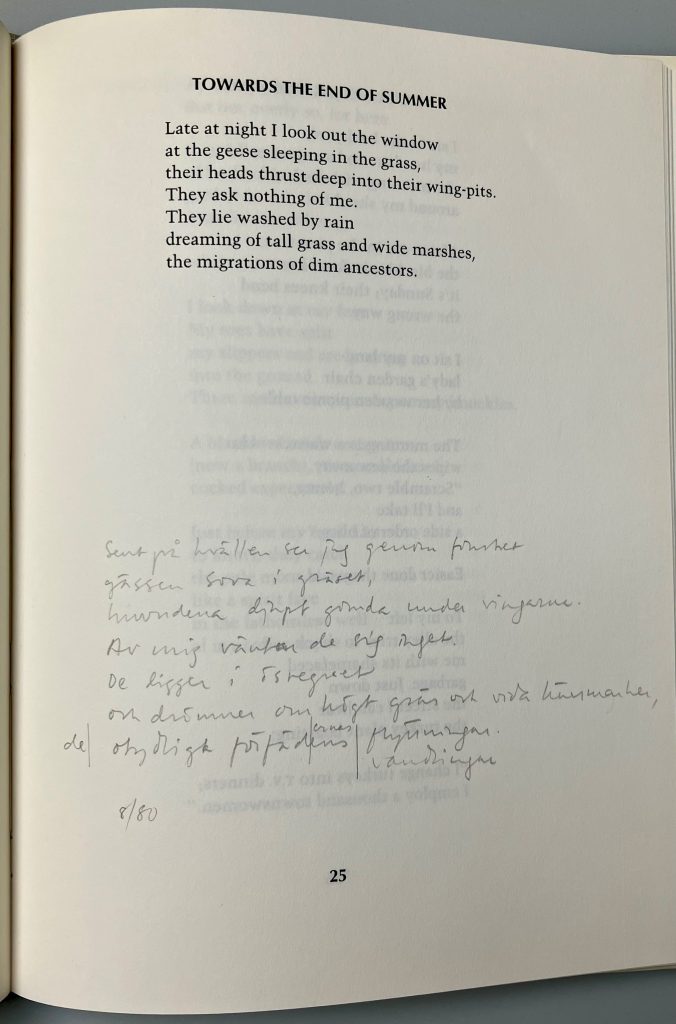 TOWARDS THE END OF SUMMER
Late at night I look out the window
at the geese sleeping in the grass,
their heads thrust deep into their wing-pits.
They ask nothing of me.
They lie washed by rain
dreaming of tall grass and wide marshes,
the migrations of dim ancestors.
Sent på kvällen ser jag genom fönstret
gässen sova i gräset,
huvudena djupt gömda under vingarna.
Av mig väntar de sig inget.
De ligger i ösregnet
och drömmer om högt gräs och vida kärrmarker,
de| otydliga förfädens |ernas| flyttningar.
vandringar
8/80
25